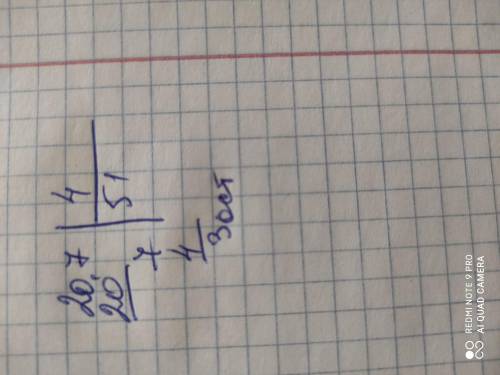 20.7 4
20 51
7
4
3 ост
REDMI NOTE 9 PRO
AI QUAD CAMERA